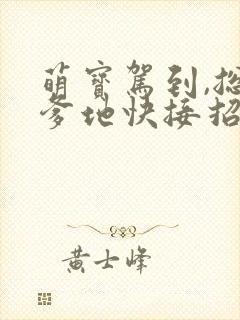 萌寶駕到,總
爹地快接招
黃士峰